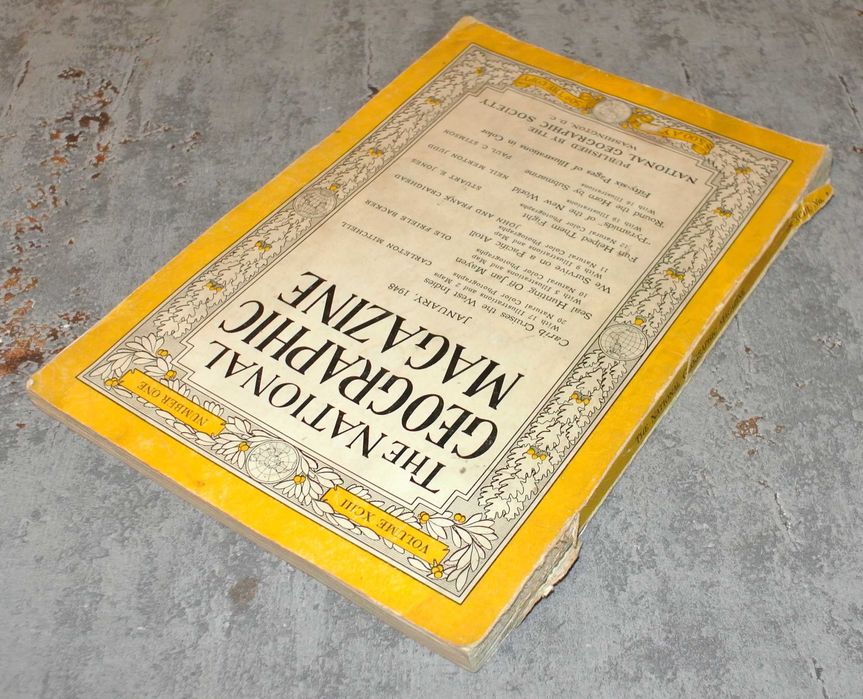 VOLUME XCIII
NUMBER ONE
THE NATIONAL
GEOGRAPHIC
MAGAZINE
JANUARY, 1948
Carib Cruises the West Indies
With 17 Illustrations and 2 Maps
20 Natural Color Photographs
CARLETON MITCHELL
Seal Hunting Off Jan Mayen
With 5 Illustrations and Map
10 Natural Color Photographs
OLE FRIELE BACKER
We Survive on a Pacific Atoll
With 9 Illustrations and Map
JOHN AND FRANK CRAIGHEAD
Fun Helped Them Fight
12 Natural Color Photographs
STUART E. JONES
"Pyramids" of the New World
With 19 Illustrations
NEIL MERTON JUDD
Round the Horn by Submarine
With 16 Illustrations
PAUL C. STIMSON
Fifty-six Pages of Illustrations in Color
PUBLISHED BY THE
NATIONAL GEOGRAPHIC SOCIETY
WASHINGTON, D. C.
THE NATIONAL GEOGRAPHIC MAGAZINE